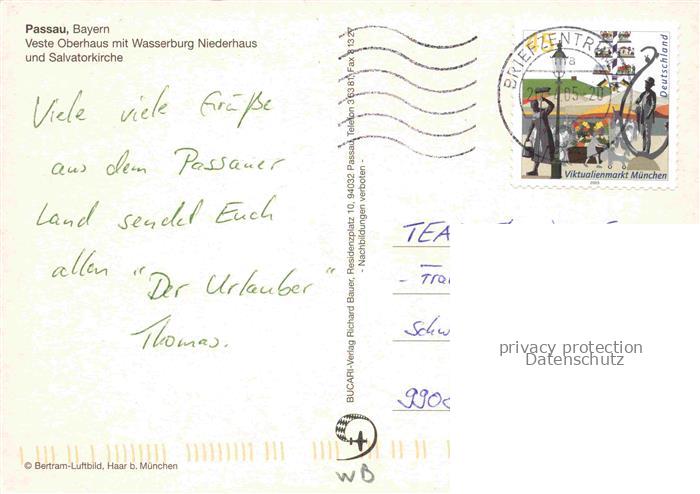 Passau, Bayern
Veste Oberhaus mit Wasserburg Niederhaus
und Salvatorkirche
Viele viele Grüße
aus dem Passauer
Land sendet Euch
allen "Der Urlauber"
Thomas.
© Bertram-Luftbild, Haar b. München
BUCARI-Verlag Richard Bauer, Residenzplatz 10, 94032 Passau, Telefon 3 63 81, Fax 8 13 27
- Nachbildungen verboten -
BRIEFZENTRUM
05-20
Deutschland
Viktualienmarkt München
2003
TEA
- Tra
Schw
990
privacy protection
Datenschutz
WB